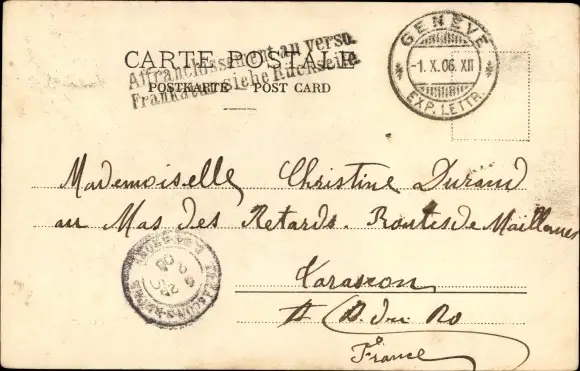 CARTE POSTALE
Affranchissement au verso.
Frankatur siehe Rückseite.
POSTKARTE POST CARD
GENÈVE
-1.X.06. XII
EXP. LETTR.
Mademoiselle Christine Durand
au Mas des Retards. Routes de Maillanes
Tarascon
B. du Ro
France
TARASCON